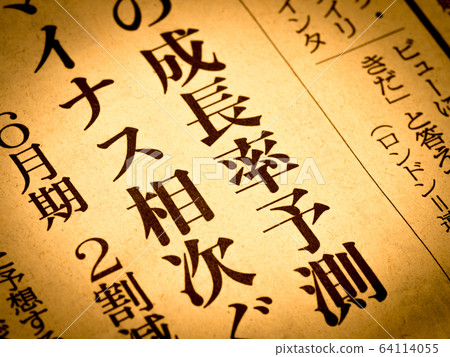 イリ
インタ
ビュー
きだ」と答え
(ロンドン=連
の成長率予測
マイナス相次ぐ
6月期 2割減
予想する
64114055